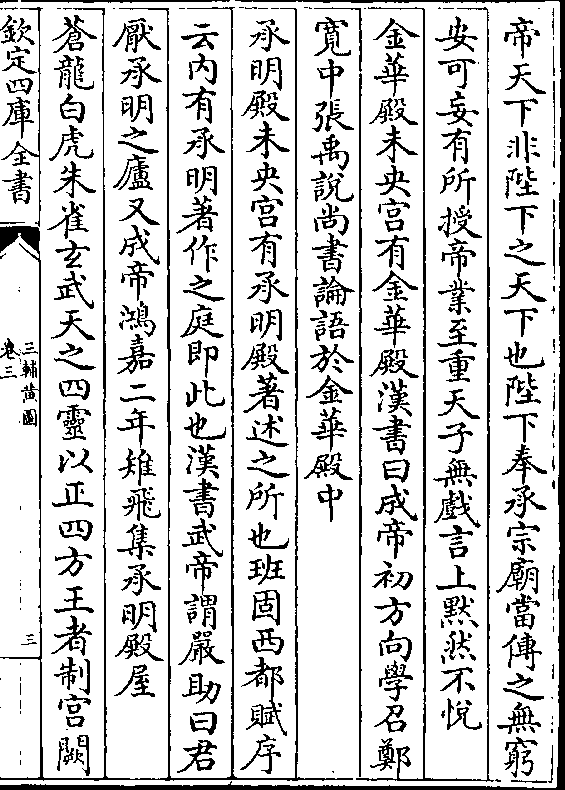 帝天下非陛下之天下也陛下奉承宗廟當傳之無窮
安可妄有所授帝業至重天子無戲言上黙然不悅
金華殿未央宫有金華殿漢書曰成帝初方向學召鄭
寛中張禹說尚書論語於金華殿中
承明殿未央宫有承明殿著述之所也班固西都賦序
云内有承明著作之庭即此也漢書武帝謂嚴助曰君
厭承明之廬又成帝鴻嘉二年雉飛集承明殿屋
蒼龍白虎朱雀玄武天之四靈以正四方王者制宫闕
欽定四庫全書
三輔黄圖
卷三
三